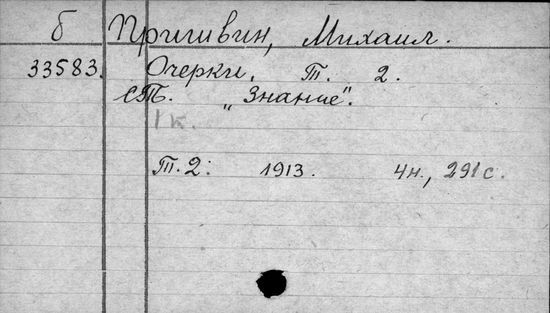 б Пришвин, Михаил.
33583. Очерки. Т. 2.
СПб. „Знание".
1 к.
Т. 2: 1913. 4н., 291 с.